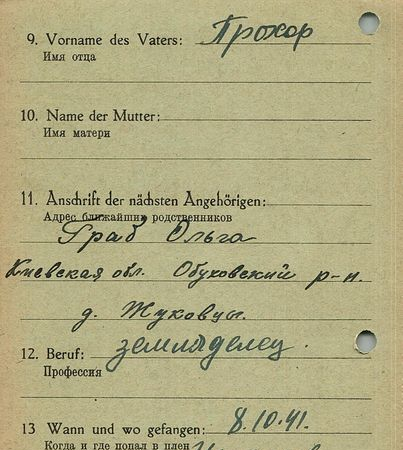 9. Vorname des Vaters: Прохор
Имя отца
10. Name der Mutter:
Имя матери
11. Anschrift der nächsten Angehörigen:
Адрес ближайших родственников
Граб Ольга
Киевская обл. Обуховский р-н.
д. Жуковцы.
12. Beruf: земледелец.
Профессия
13 Wann und wo gefangen: 8.10.41.
Когда и где попал в плен